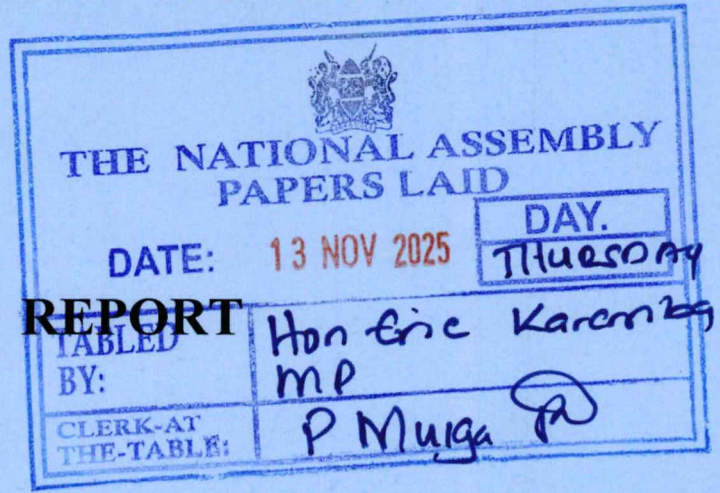 THE NATIONAL ASSEMBLY
PAPERS LAID
DATE: 13 NOV 2025
DAY.
THURSDAY
REPORT
TABLED BY:
Hon Eric Karemba
MP
CLERK-AT THE-TABLE:
P Muiga